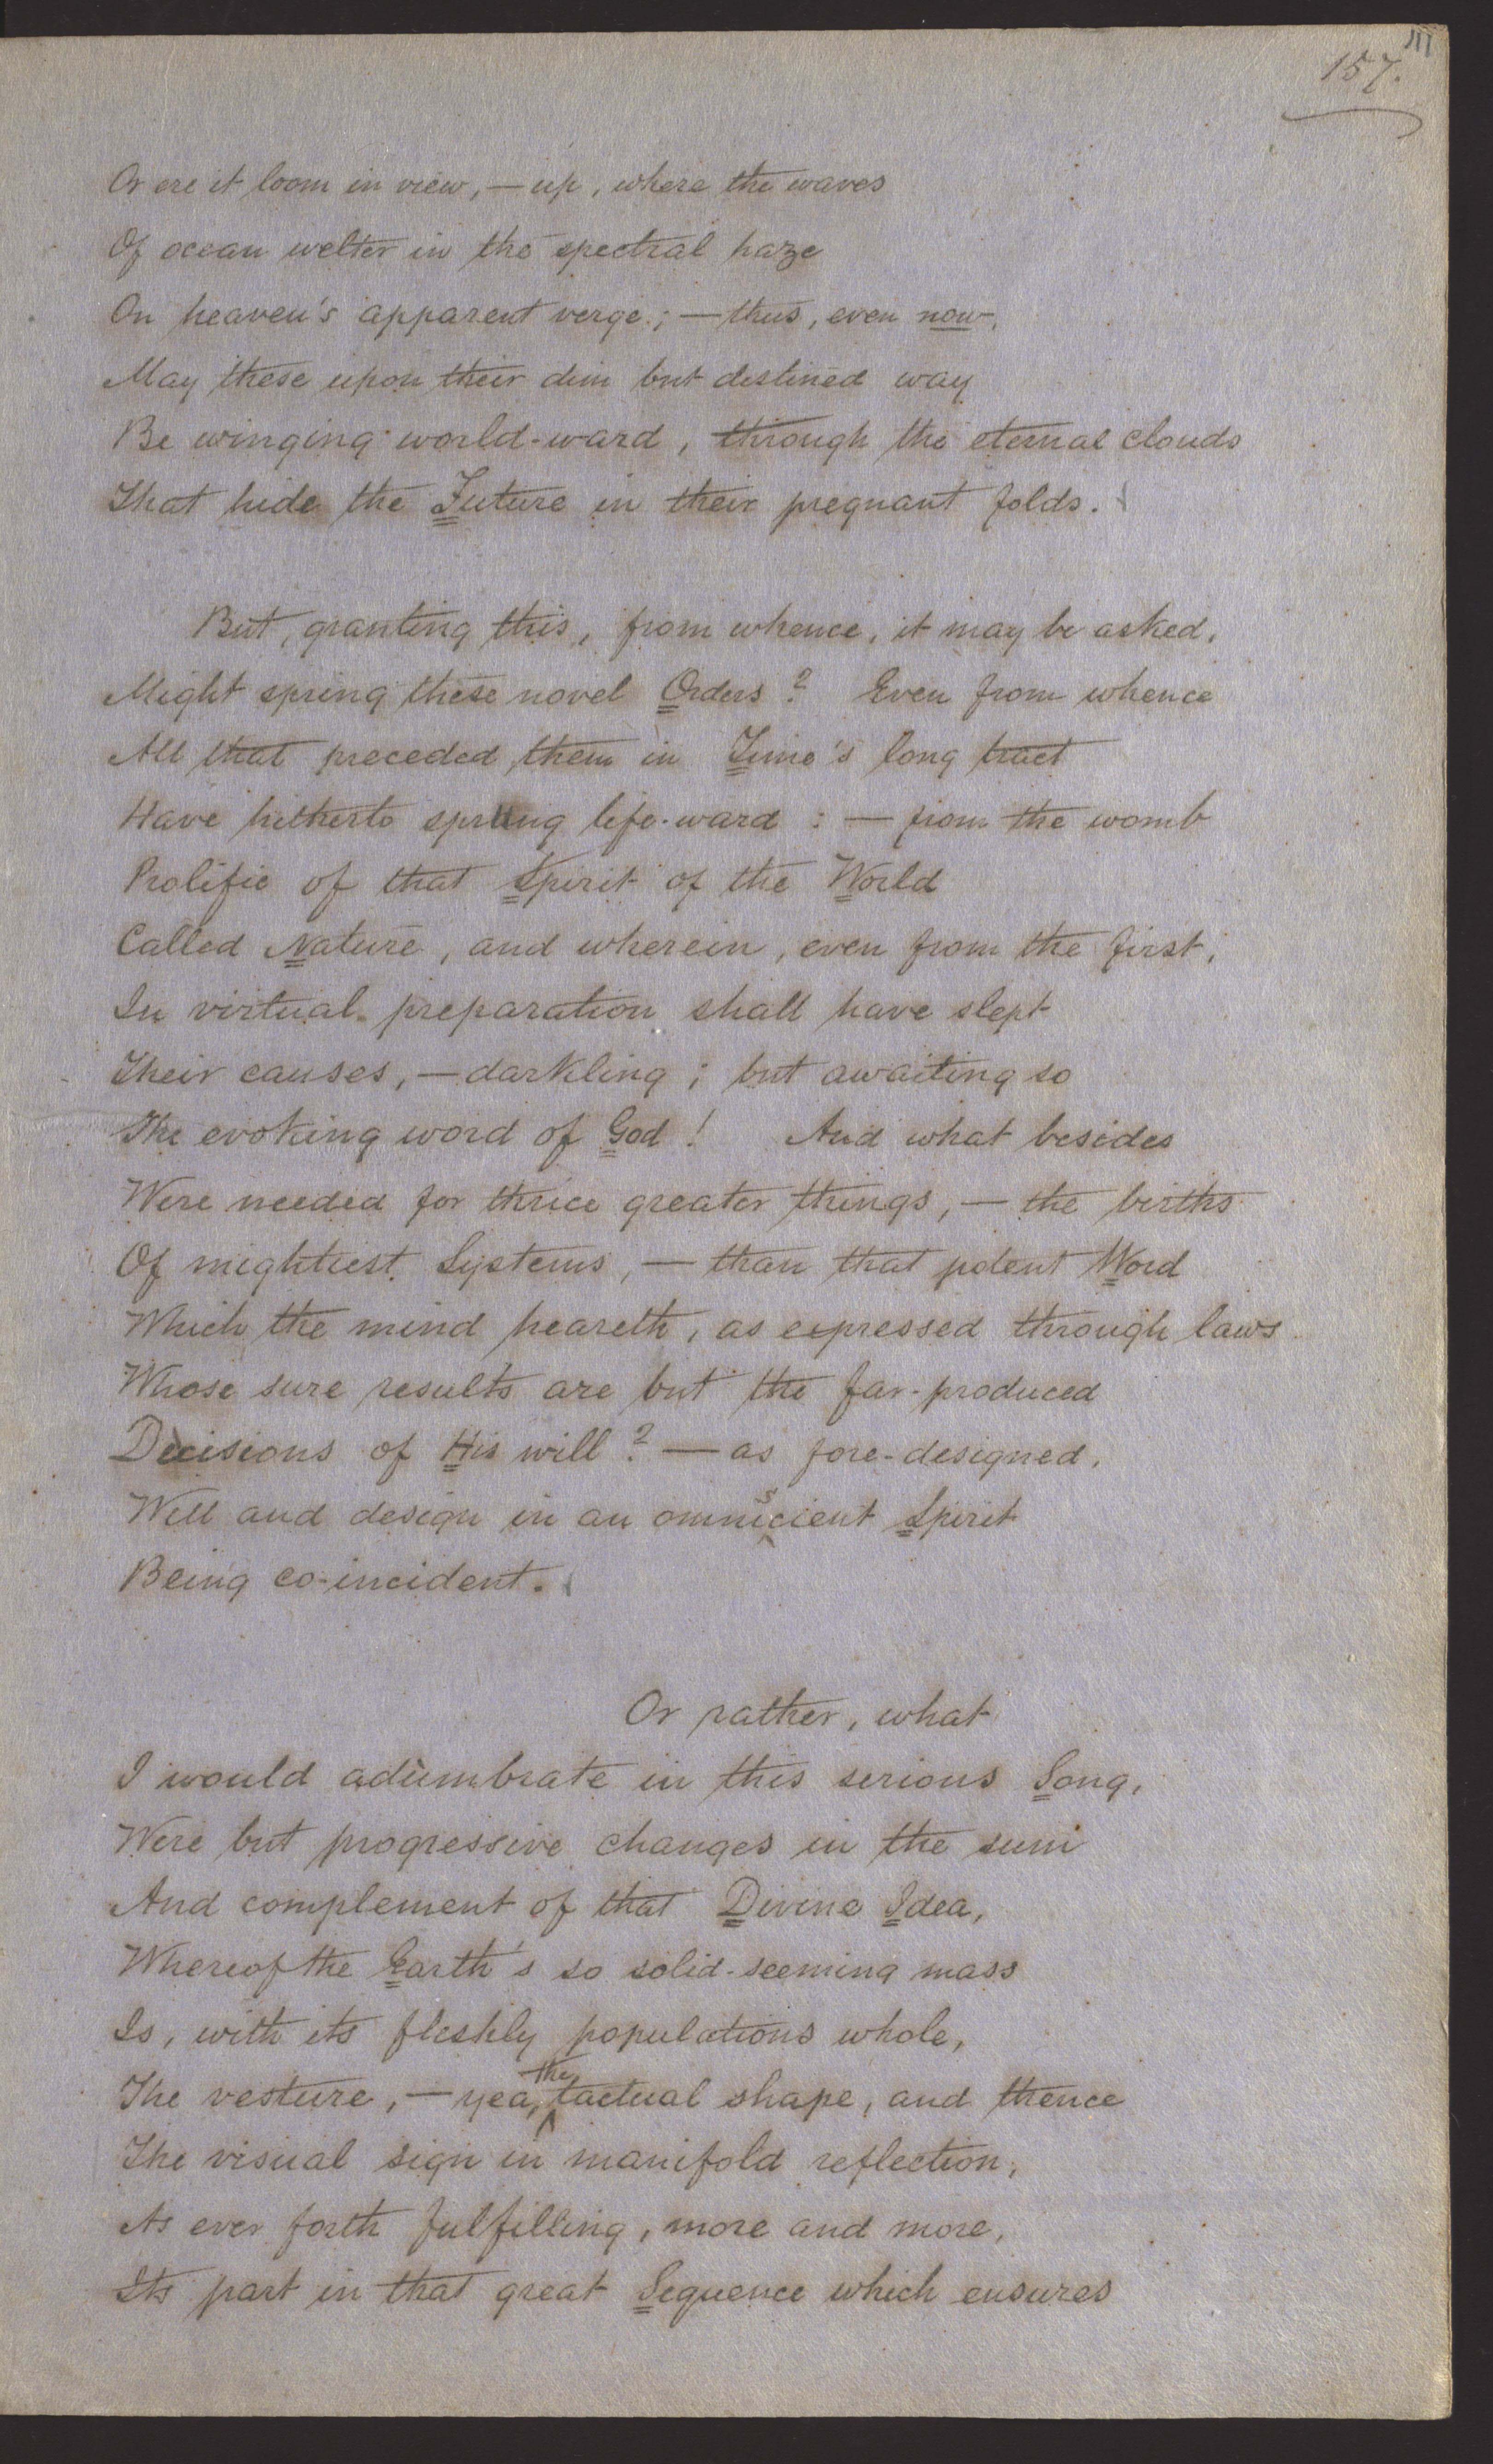 157.
Or ere it loom in view, — up, where the waves
Of ocean welter in the spectral haze
On heaven's apparent verge; — thus, even now,
May these upon their dim but destined way
Be winging world-ward, through the eternal clouds
That hide the Future in their pregnant folds.
But, granting this, from whence, it may be asked,
Might spring these novel Orders? Even from whence
All that preceded them in Time's long tract
Have hitherto sprung life-ward: — from the womb
Prolific of that Spirit of the World
Called Nature, and wherein, even from the first,
In virtual preparation shall have slept
Their causes, — darkling; but awaiting so
The evoking word of God! And what besides
Were needed for thrice greater things, — the births
Of mightiest Systems, — than that potent Word
Which the mind heareth, as expressed through laws
Whose sure results are but the far-produced
Decisions of His will? — as fore-designed,
Will and design in an omniscient Spirit
Being co-incident.
Or rather, what
I would adumbrate in this serious Song,
Were but progressive changes in the sum
And complement of that Divine Idea,
Whereof the Earth's so solid-seeming mass
Is, with its fleshly populations whole,
The vesture, — yea, the tactual shape, and thence
The visual sign in manifold reflection,
As ever forth fulfilling, more and more,
Its part in that great Sequence which ensures